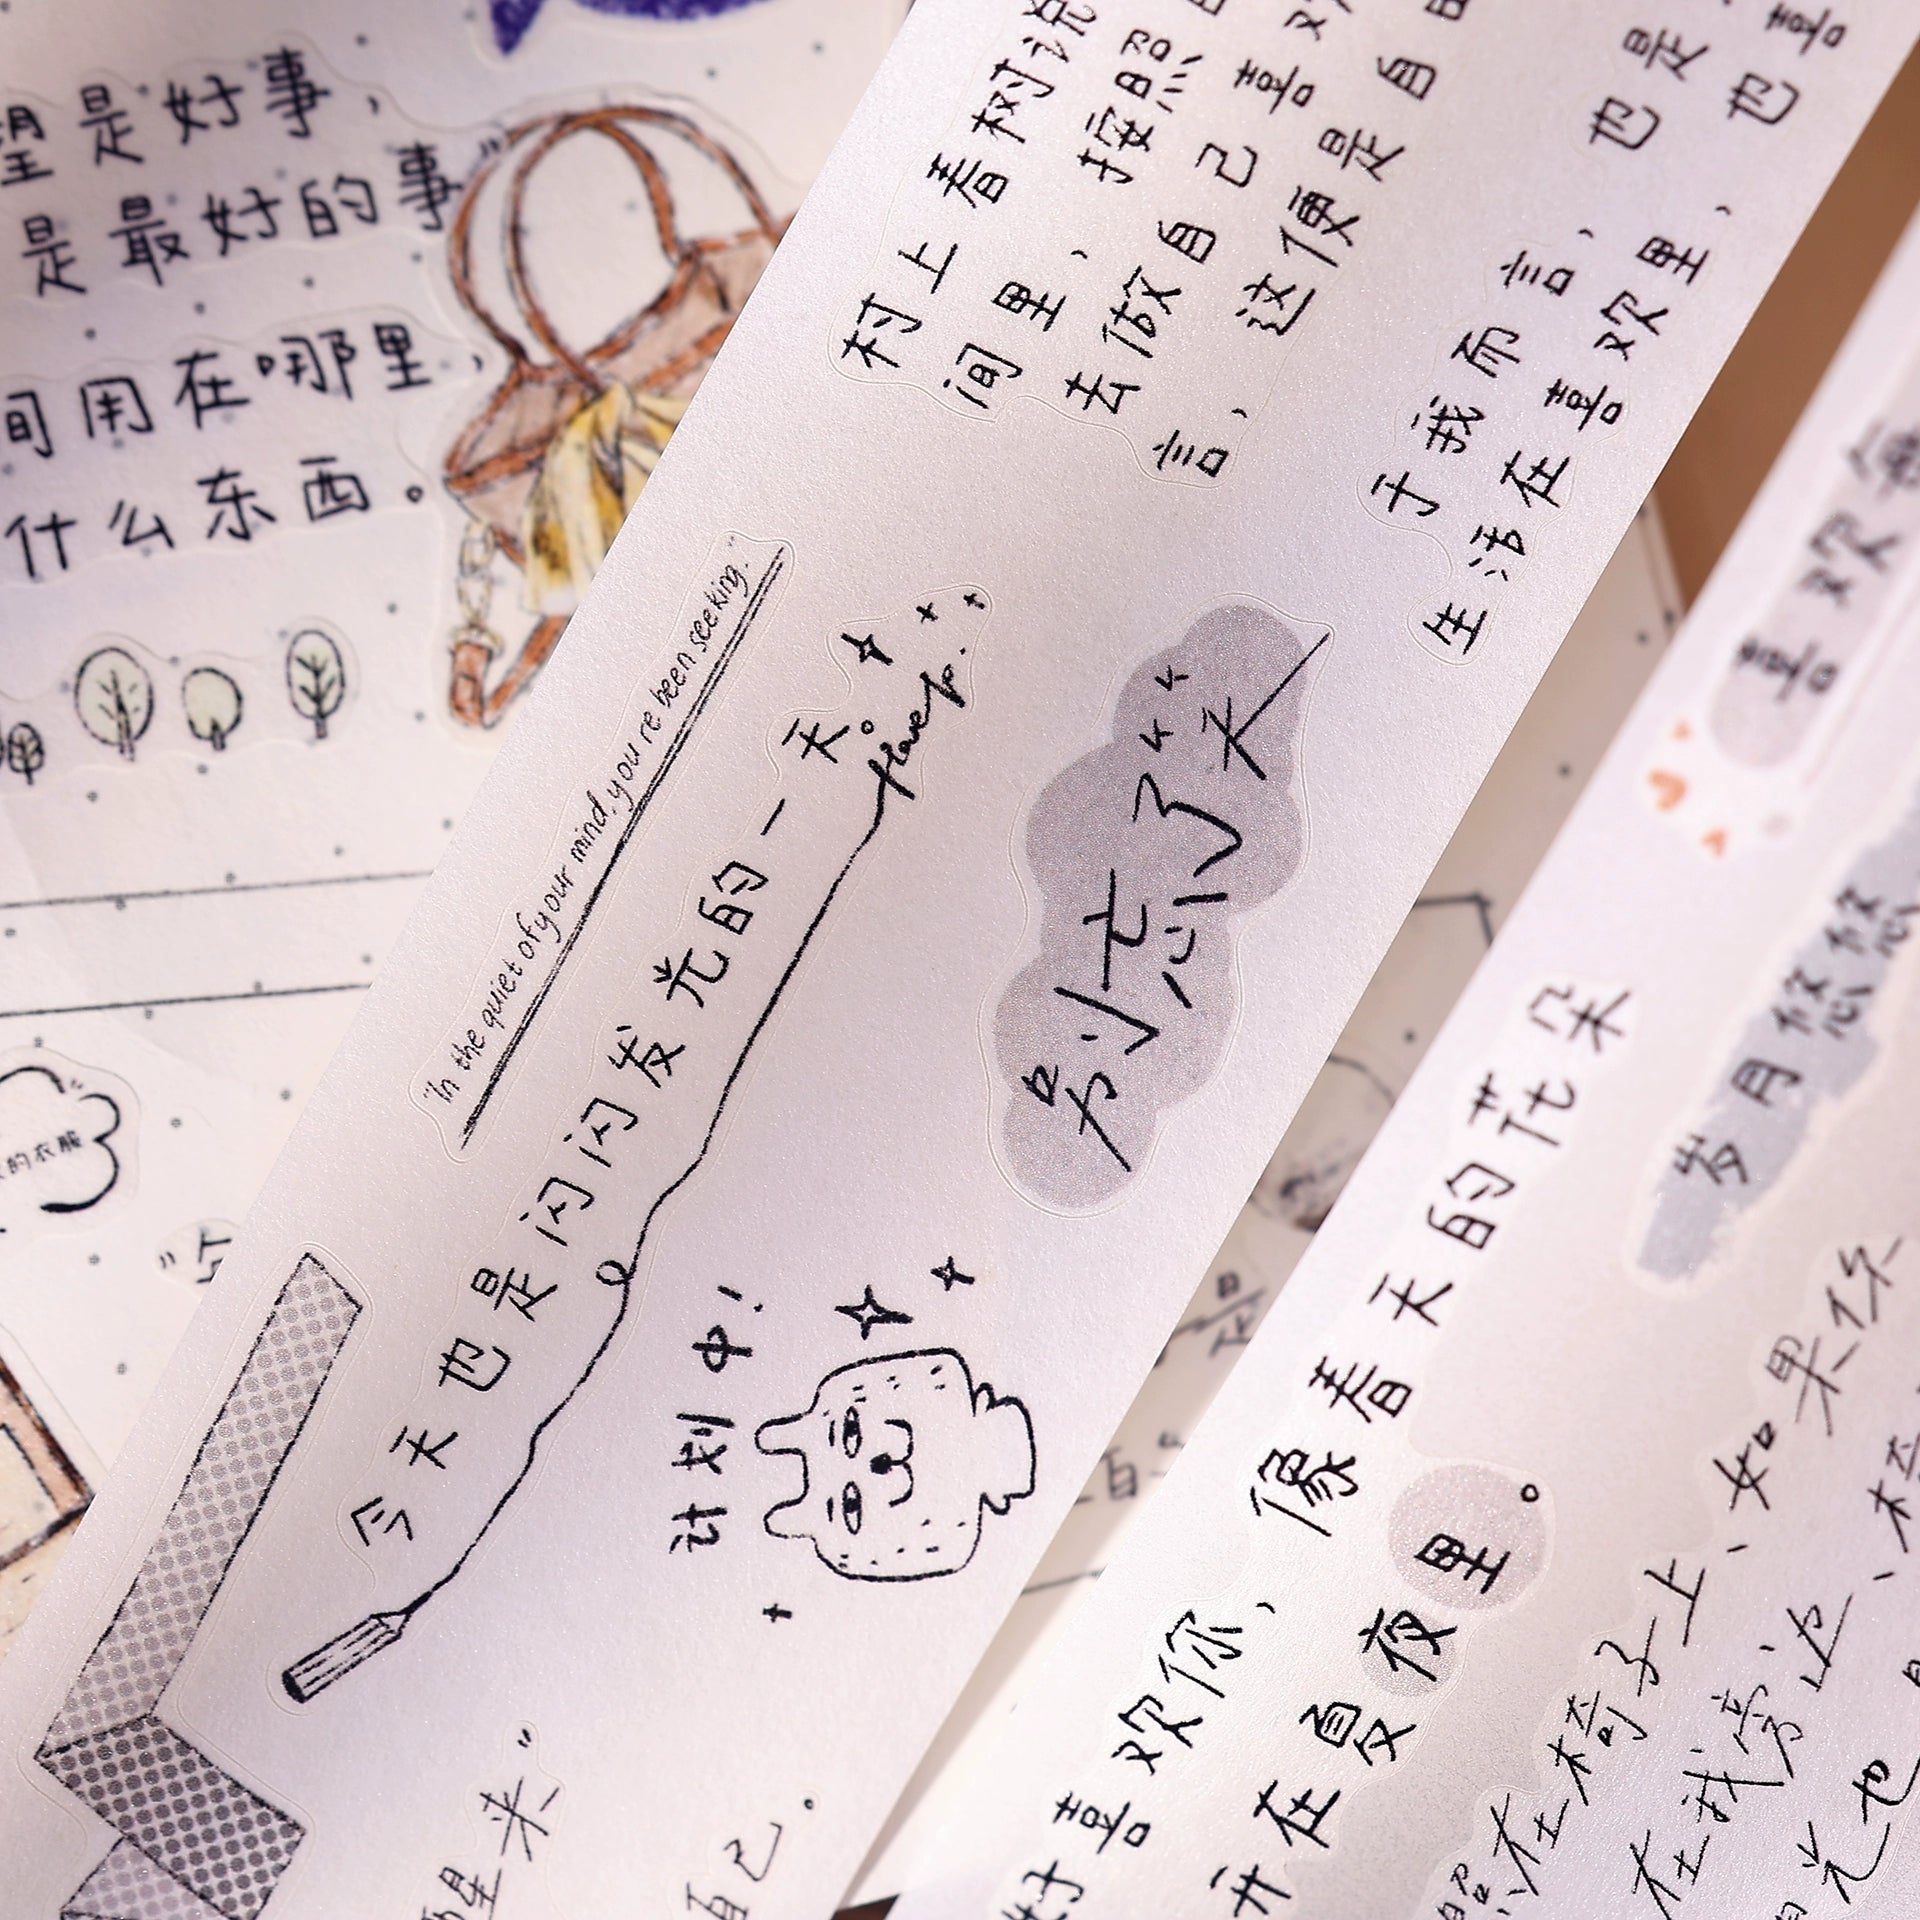 是好事，
是最好的事”
间用在哪里，
什么东西。
的衣服
村上春树说
间里，按照
去做自己喜欢
言，这便是自
于我而言，也是
生活在喜欢里，也喜
"In the quiet of your mind, you're been seeking."
今天也是闪闪发光的一天。
别忘了“笑”
计划中！
醒来”
自己.
喜欢
岁月悠悠
好喜欢你，像春天的花朵
开在夏夜里。
照在椅子上、如果你
在我旁边、椅
光也